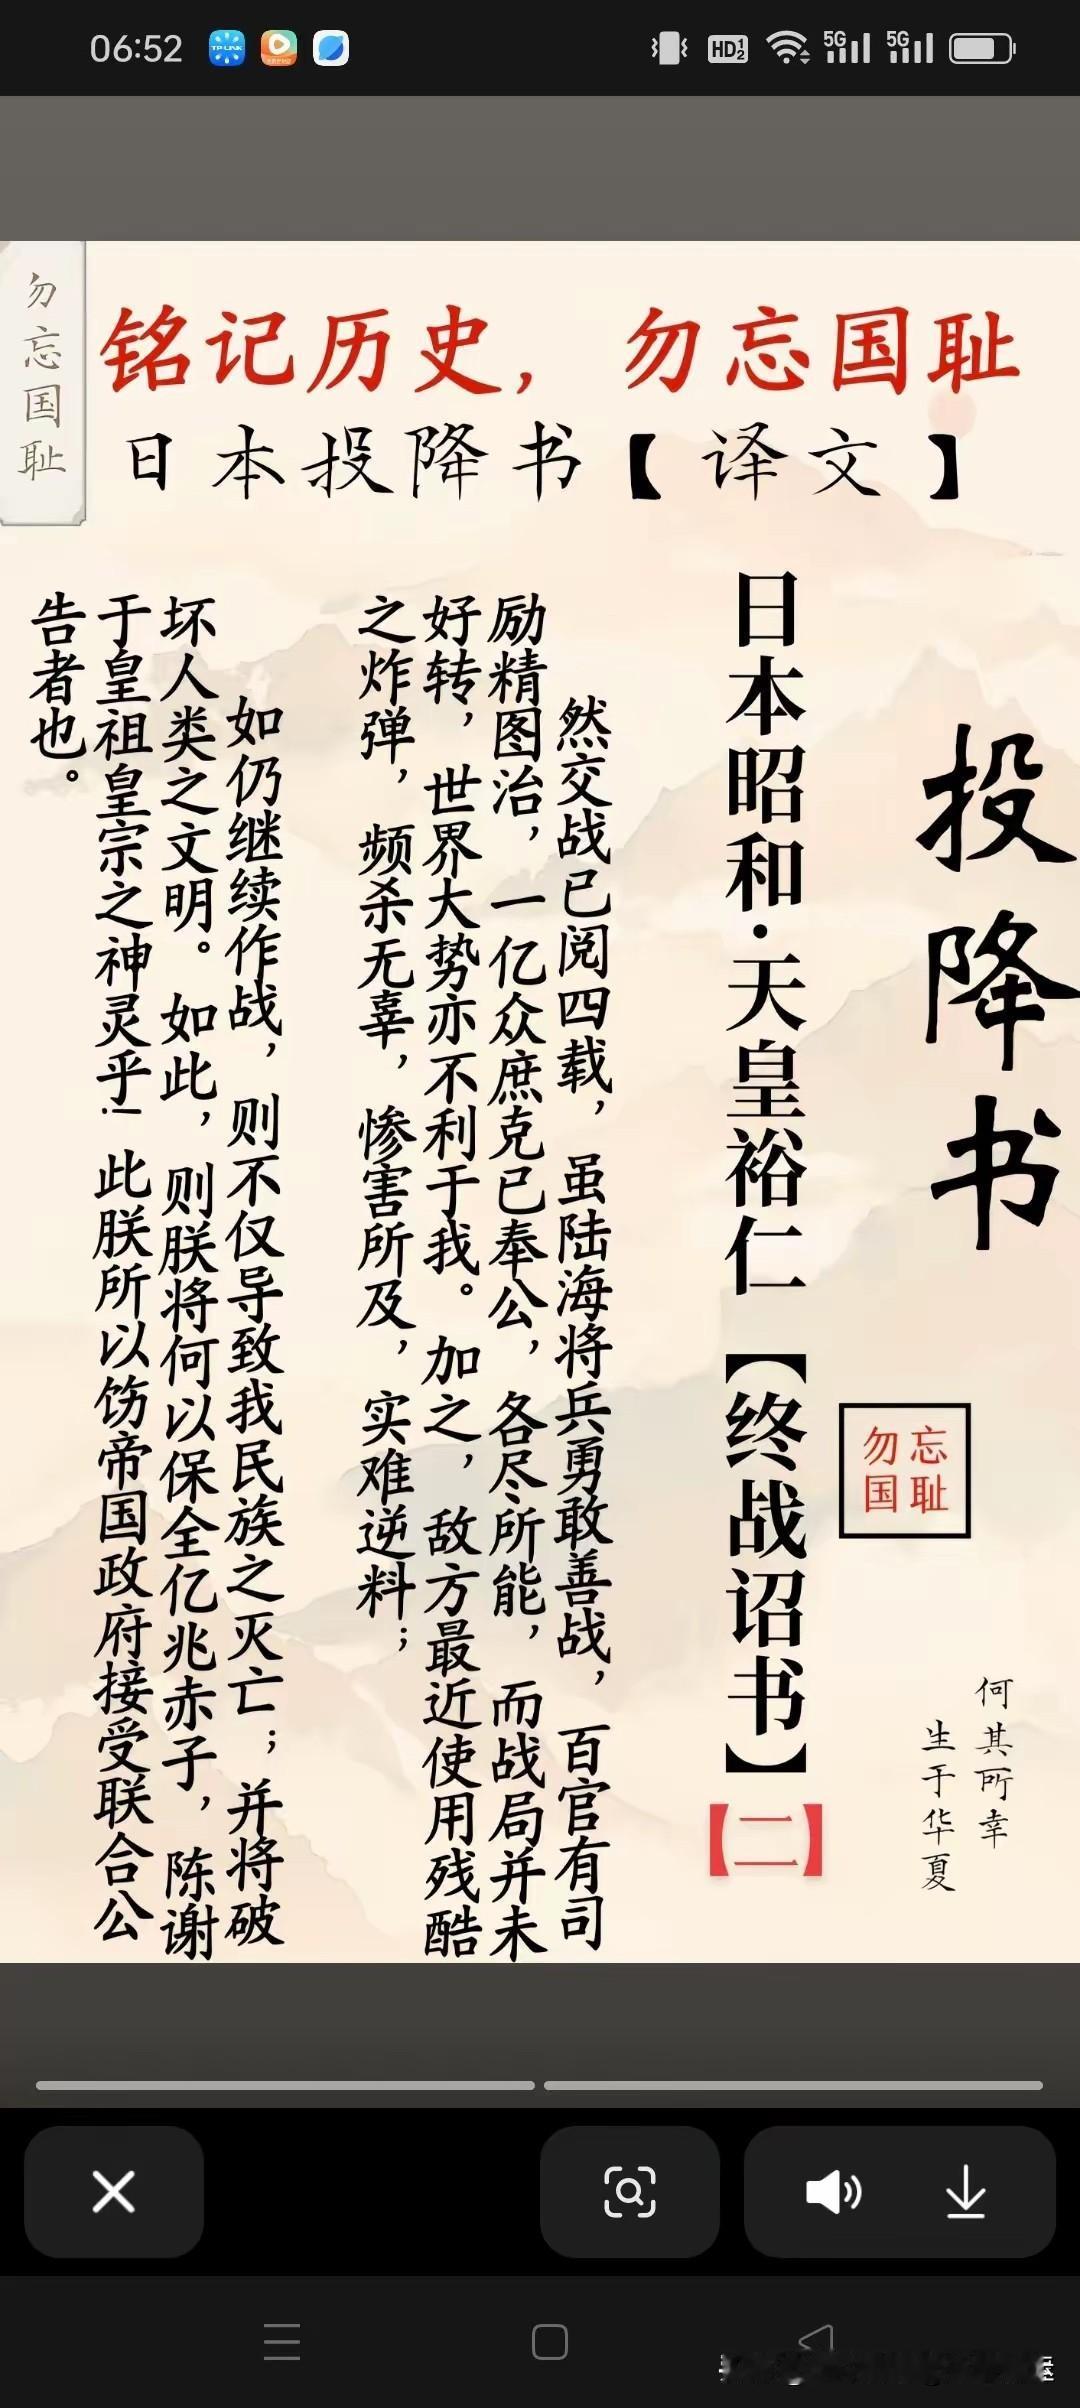 06:52
HD 1 2
5G
5G
TP-LINK
勿忘国耻
铭记历史，勿忘国耻
日本投降书【译文】
投降书
勿忘
国耻
何其所幸
生于华夏
日本昭和·天皇裕仁【终战诏书】【二】
然交战已阅四载，虽陆海将兵勇敢善战，百官有司
励精图治，一亿众庶克已奉公，各尽所能，而战局并未
好转，世界大势亦不利于我。加之，敌方最近使用残酷
之炸弹，频杀无辜，惨害所及，实难逆料；
如仍继续作战，则不仅导致我民族之灭亡；并将破
坏人类之文明。如此，则朕将何以保全亿兆赤子，陈谢
于皇祖皇宗之神灵乎!此朕所以饬帝国政府接受联合公
告者也。